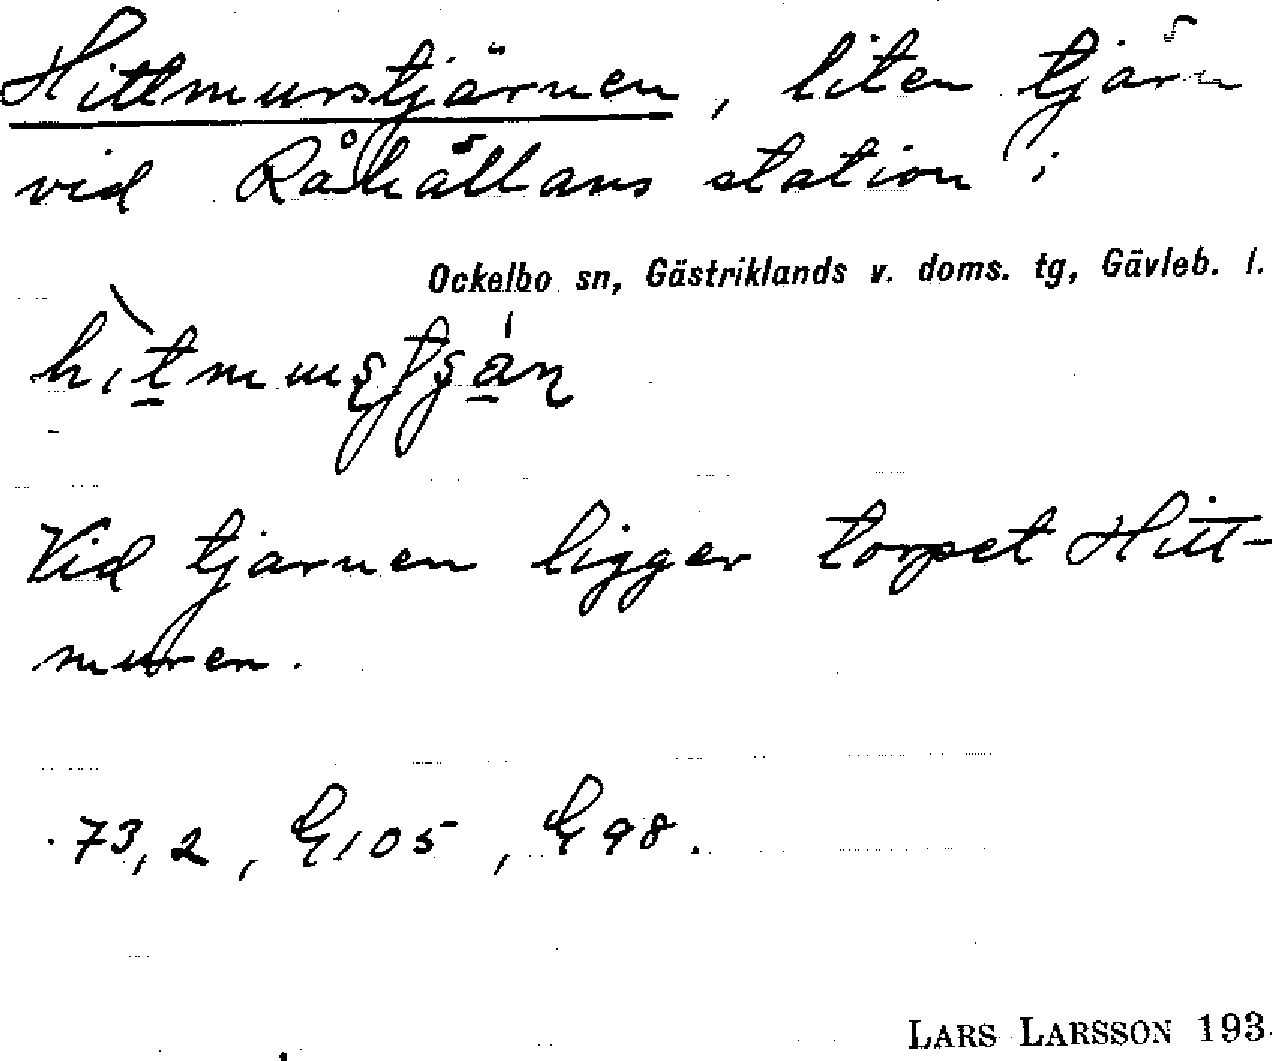 Hittmurstjärnen, liten tjärn
vid Råhällans station i
Ockelbo sn, Gästriklands v. doms. tg, Gävleb. l.
Vid tjarnen ligger torpet Hitt-
muren.
73,2, G105, G98.
LARS LARSSON 193